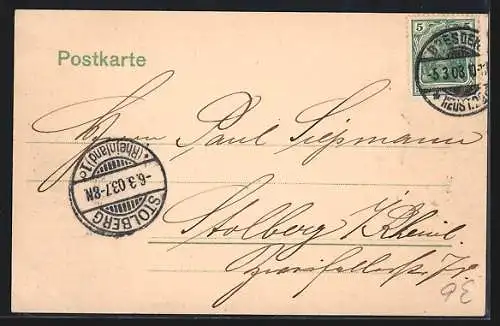 Postkarte
5
DRESDEN
-5.3.03.10-
* NEUST.
Herrn Paul Siepmann
STOLBERG
-6.3.03.7-8N.
*(Rheinland)1c
Stolberg Rheinl.